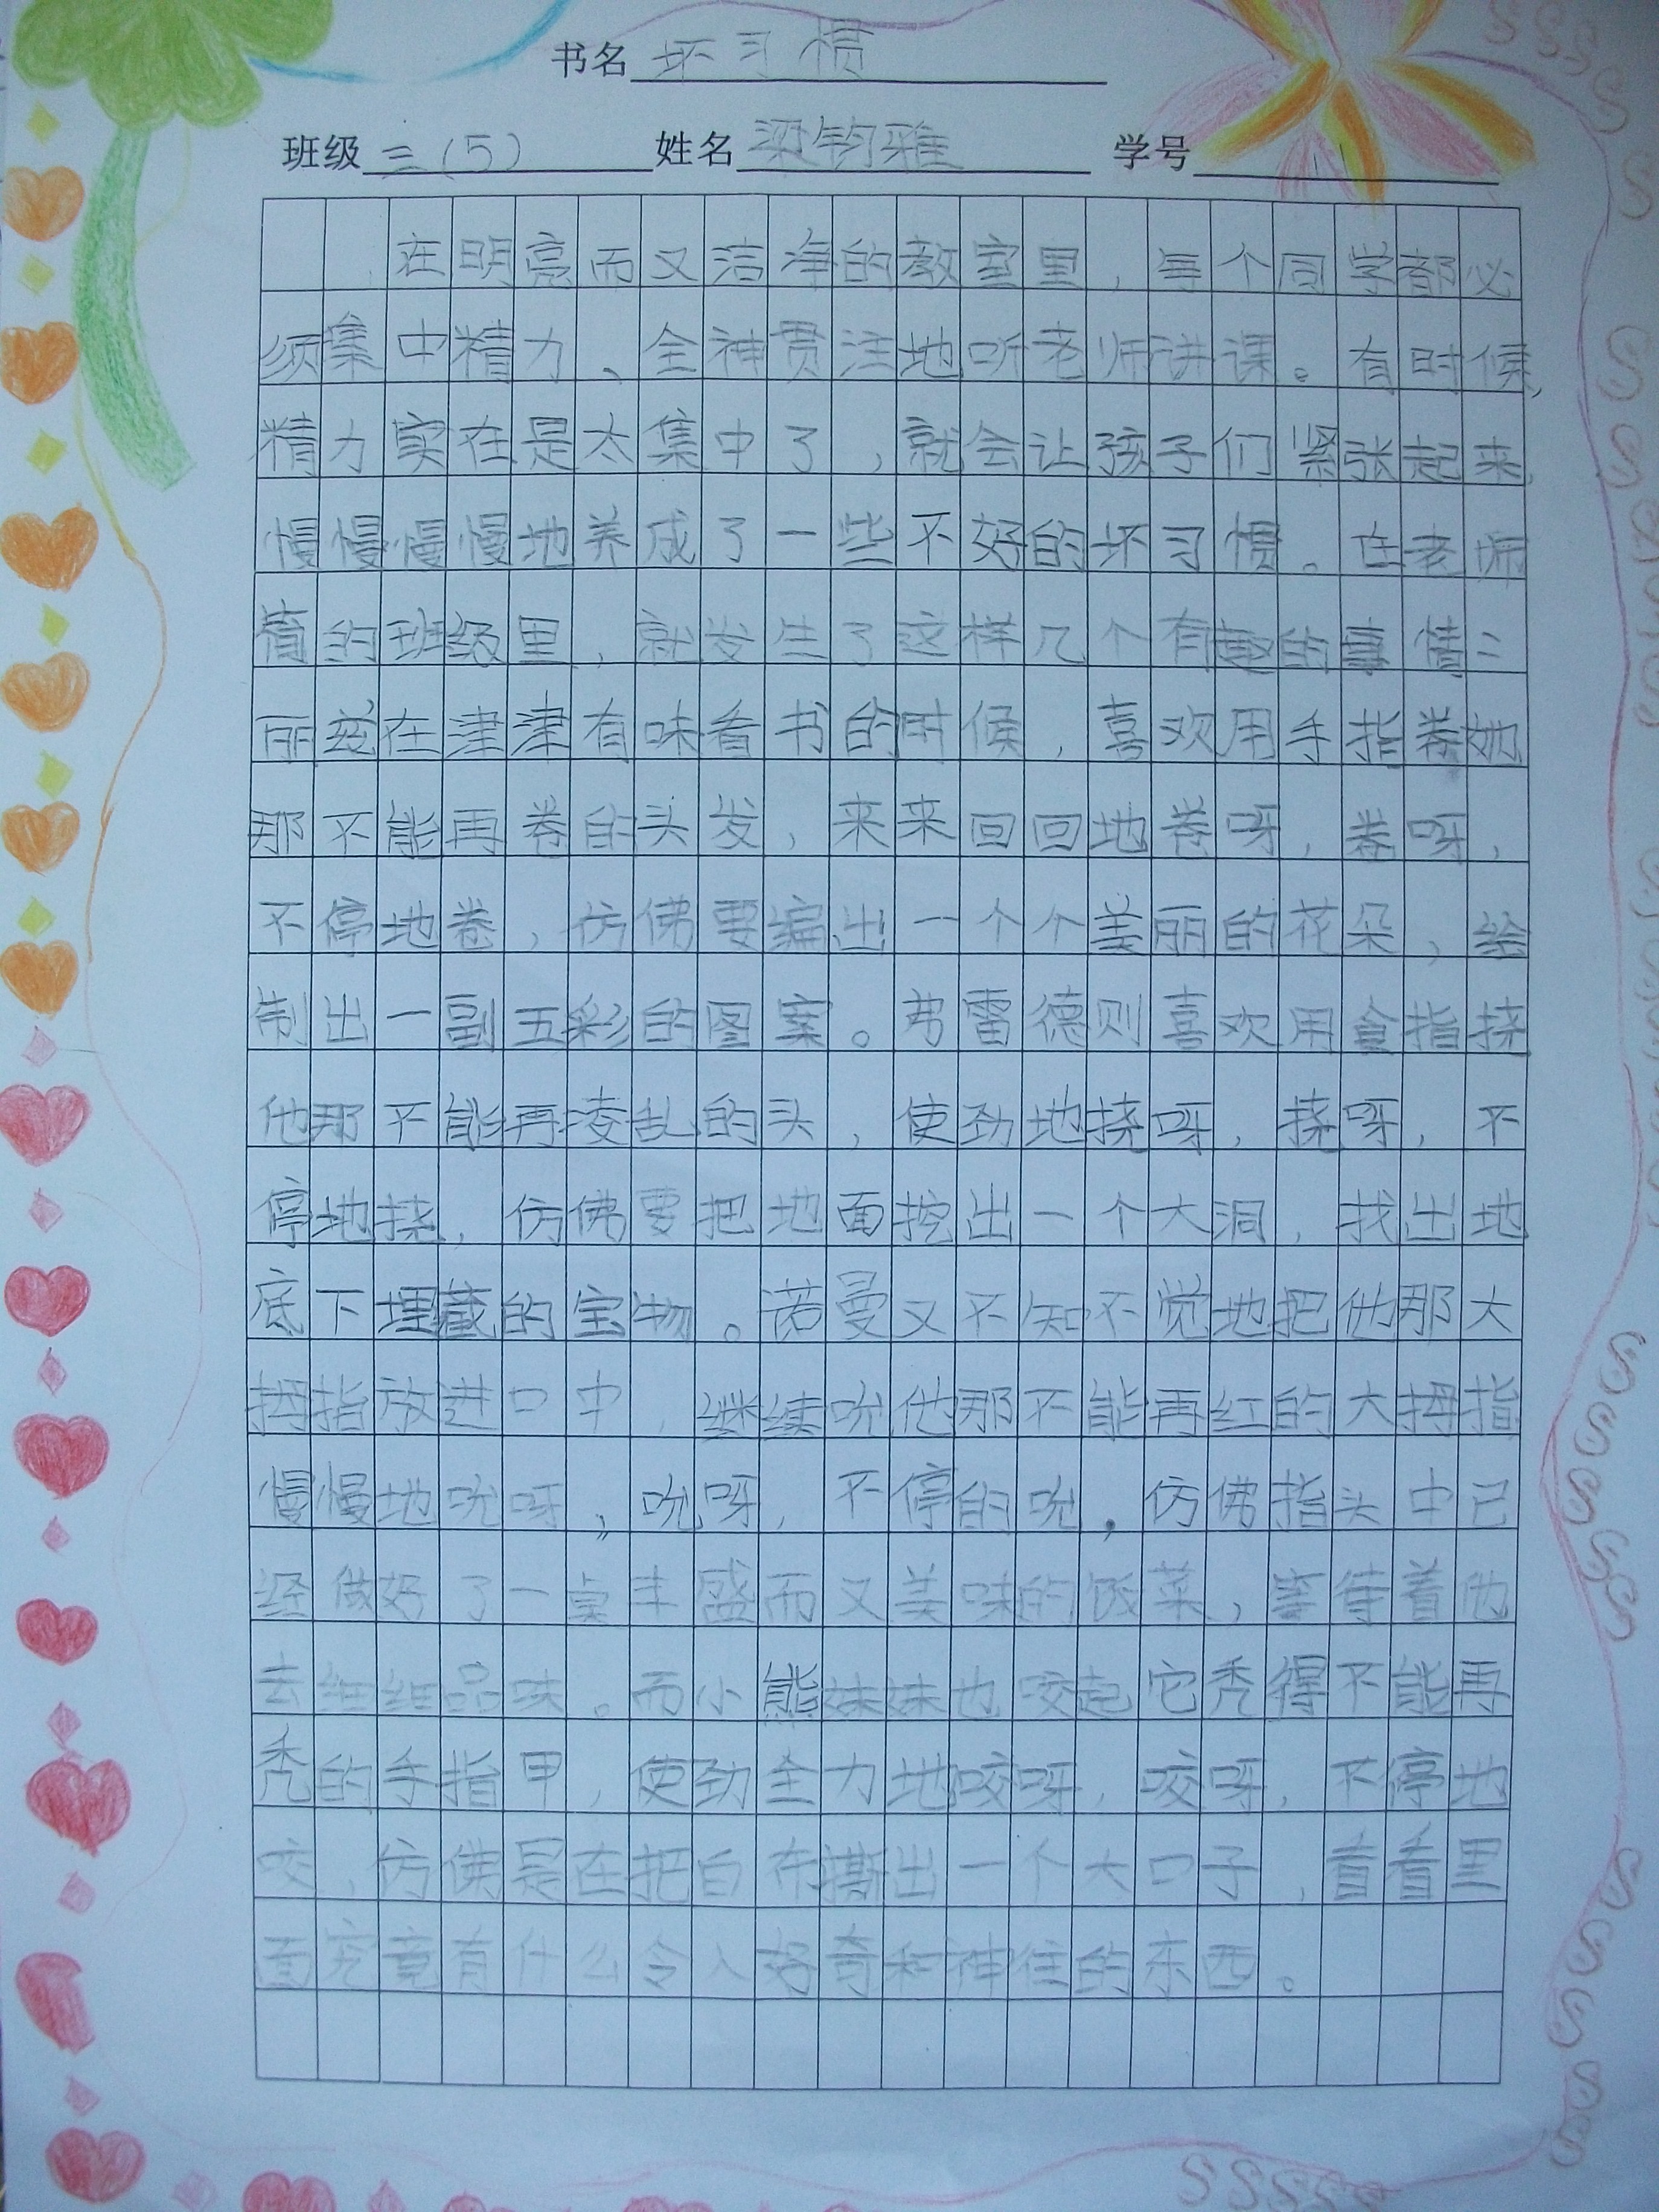 书名 坏习惯
班级 三(5) 姓名 梁钧雅 学号
在明亮而又洁净的教室里，每个同学都必
须集中精力、全神贯注地听老师讲课。有时候，
精力实在是太集中了，就会让孩子们紧张起来，
慢慢慢慢地养成了一些不好的坏习惯。在老师
的班级里，就发生了这样几个有趣的事情：
丽兹在津津有味看书的时候，喜欢用手指卷她
那不能再卷的头发，来来回回地卷呀，卷呀，
不停地卷，仿佛要编出一个个美丽的花朵，绘
制出一副五彩的图案。弗雷德则喜欢用食指挠
他那不能再凌乱的头，使劲地挠呀，挠呀，不
停地挠，仿佛要把地面挖出一个大洞，找出地
底下埋藏的宝物。诺曼又不知不觉地把他那大
拇指放进口中，继续吮他那不能再红的大拇指
慢慢地吮呀，吮呀，不停的吮，仿佛指头中已
经做好了一桌丰盛而又美味的饭菜，等待着他
去细细品味。而小熊妹妹也咬起它秃得不能再
秃的手指甲，使劲全力地咬呀，咬呀，不停地
咬，仿佛是在把白布撕出一个大口子，看看里
面究竟有什么令人好奇和神往的东西。